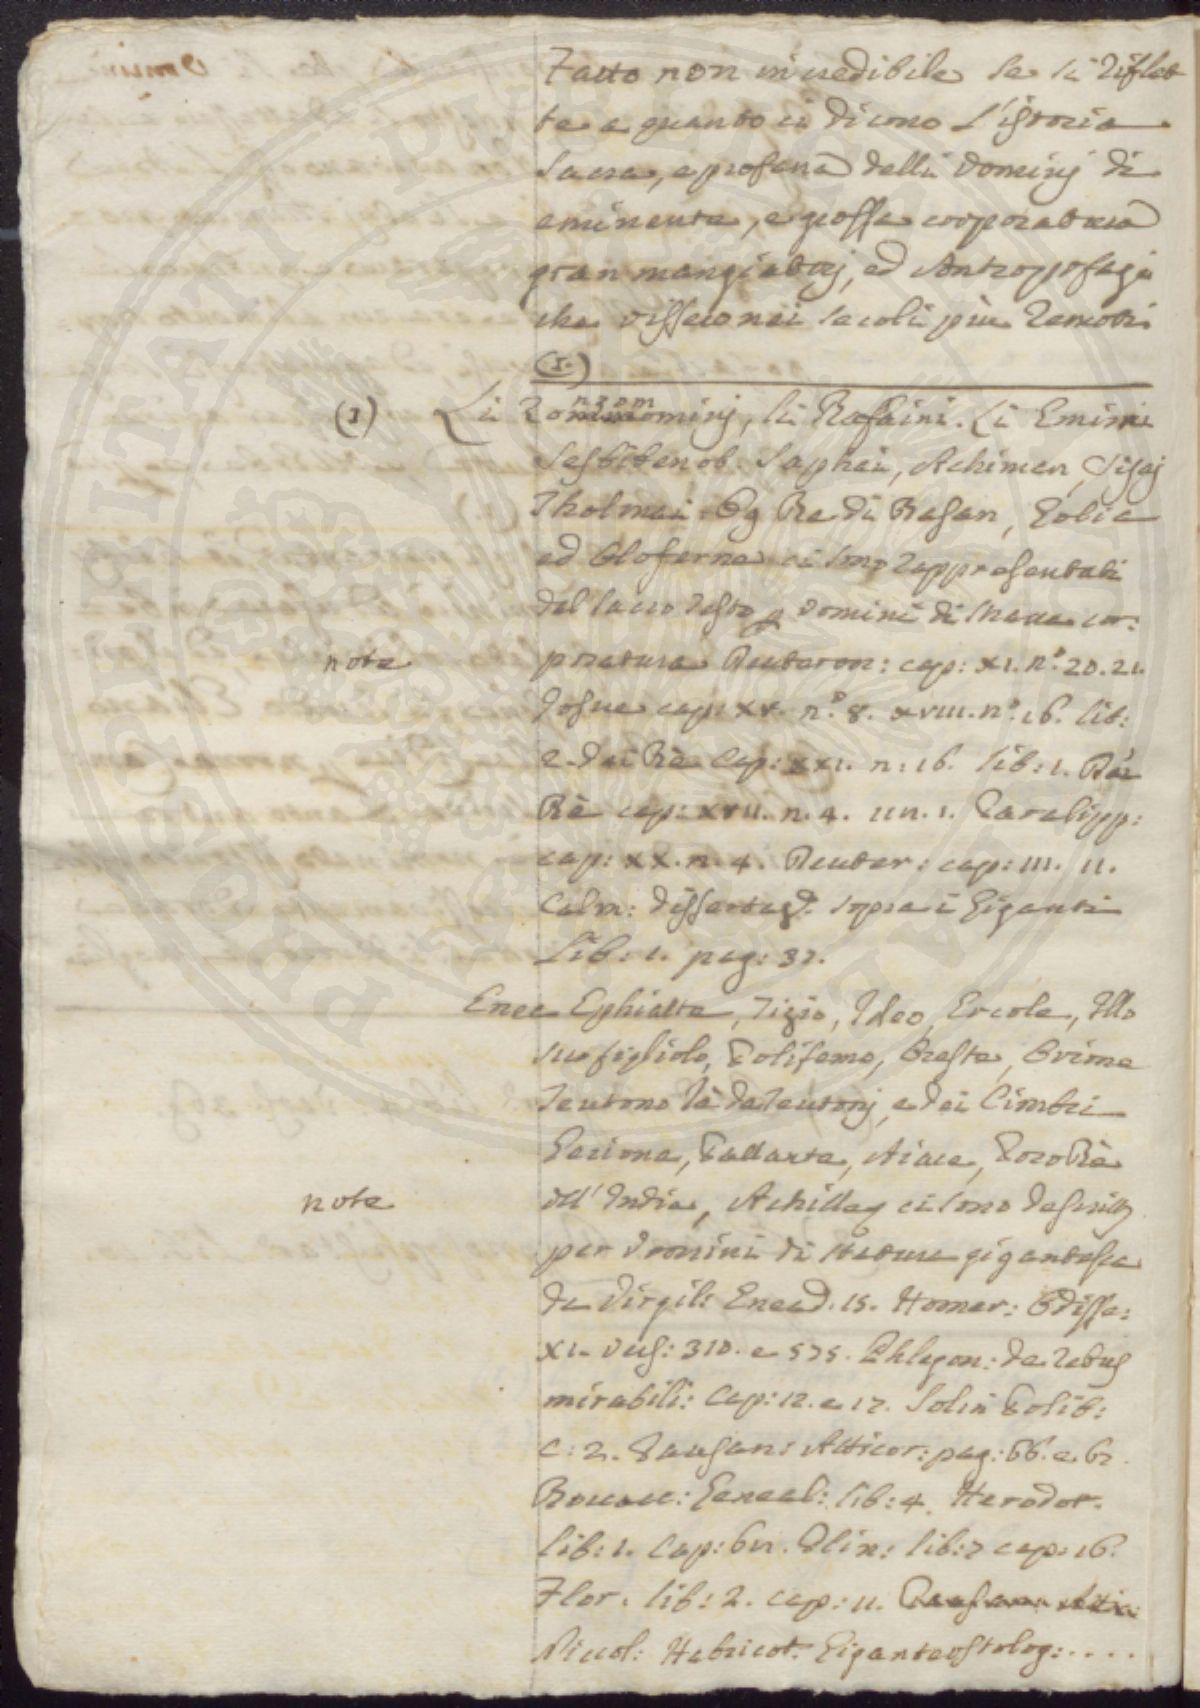 Fatto non incredibile se si riflet
te a quanto ci dicono l'istoria
sacra, e profana delli Vomini di
eminente, e grossa corporatura
gran mangiatori, ed Antropofagi
che vissero nei secoli più remoti
(1.)
(1) Li Zomzommini, li Rafaini. Li Emimi
Sesbibenob. Saphai, Achiman, Sisai
Tholmai. Og Re di Basan, Golia
ed Oloferne ci sono rappresentati
dal sacro Testo p Vomini di strana cor:
note
poratura Deuteron: cap: XI. n.º 20. 21.
Josue cap: XV. nº. 8. XVIII. nº. 16. lib:
2. dei Rè Cap: XXI. n: 16. lib: 1. Dei
Rè cap: XVII. n. 4. 11 n. 1. Paralipp:
cap: XX. n. 4. Deuter: cap: III. 11.
Calm: dissertaz. sopra i Giganti
Lib: 1. pag: 37.
Enea Ephialte, Tizio, Ideo, Ercole, Illo
suo figliolo, Polifemo, Oreste, Orione
Teutono Rè da Teutonj, e dei Cimbri
Gerione, Pallante, Aiace, Poro Rè
note
dell' India, Achille ci sono descritti
per Vomini di statura gigantesca
da Virgil: Enead. 15. Homer: Odisse:
XI. vers: 310. e 575. Phlegon: de rebus
mirabili: Cap: 12. e 17. Solin Polib:
c: 2. Pausan: Atticor: pag: 66. e 67.
Boccacc: Geneal: lib: 4. Herodot.
lib: 1. Cap: 67. Plin: lib: 7 cap: 16.
Flor. lib: 2. cap: 11. Pausan: Attic:
Niccol: Habicot: Giganteostolog: . . . .
PROSPERITATI PVBLICAE